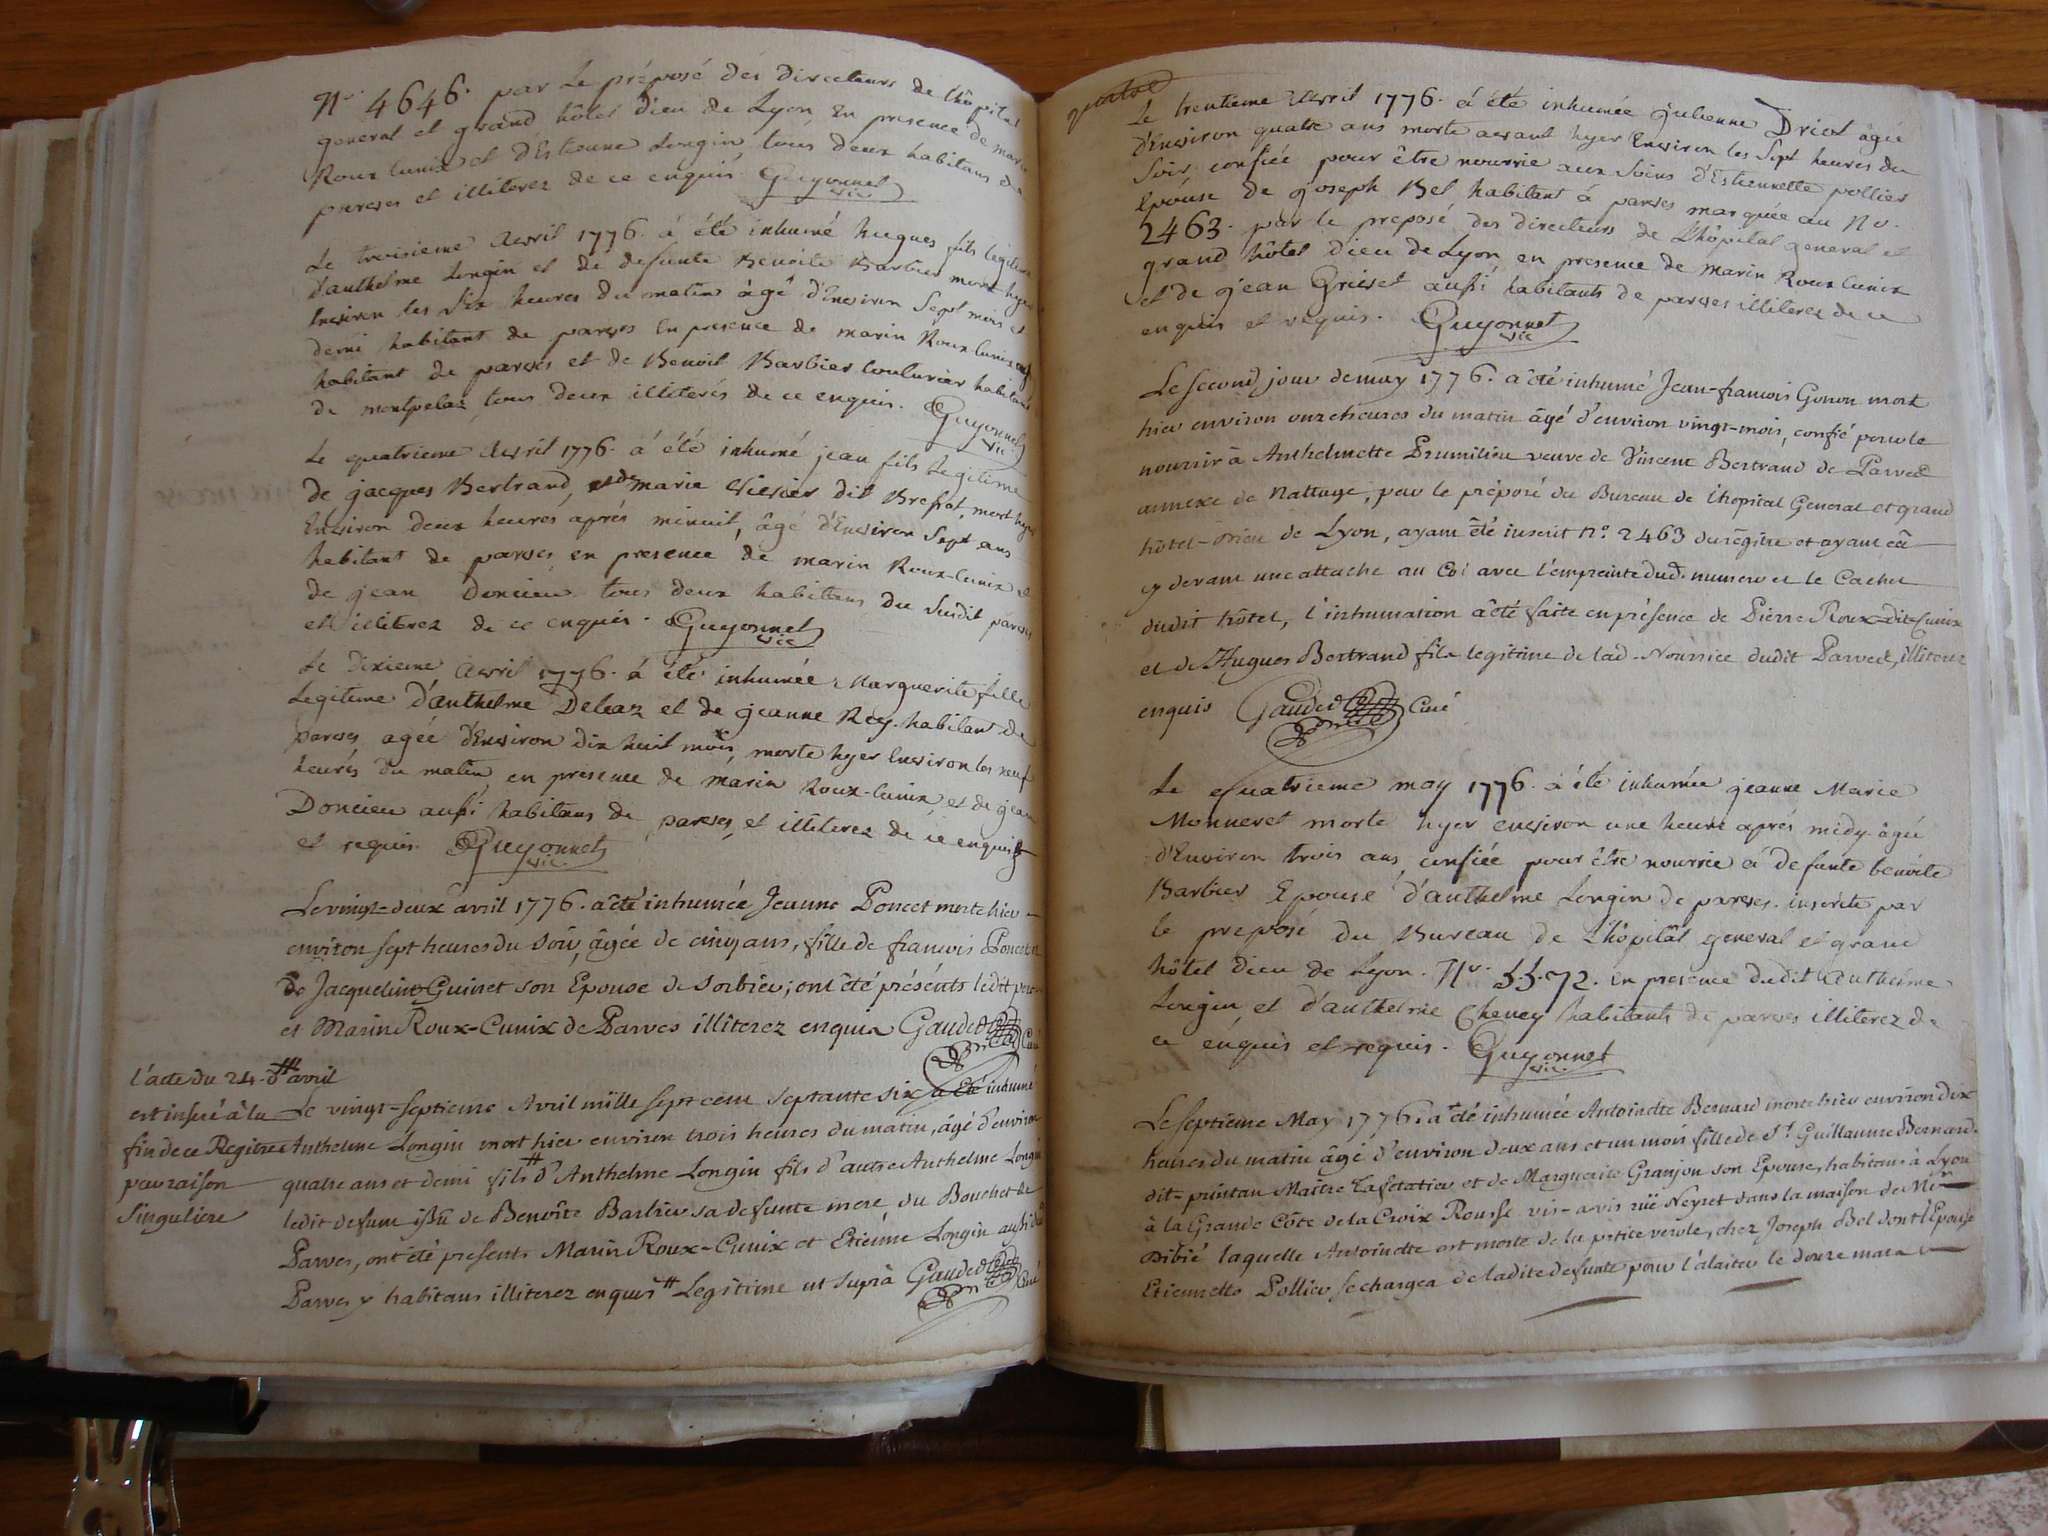 N.º 4646. par Le préposé des directeurs de l'hôpital
general et grand hôtel dieu de Lyon En presence de marin
Roux Cunix et d'Estienne Longin tous deux habitans de
parves et illiterez de ce enquis. Guyonnet
vic.
Le troisieme Avril 1776. á été inhumé hugues fils légitime
d'anthelme Longin et de defunte Benoite Barbier mort hyer
Environ les six heures du matin âgé d'Environ Sept mois et
demi habitant de parves En presence de marin Roux Cunix aussi
habitant de parves et de Benoit Barbier habitant
de tous deux illiterés de ce enquis. Guyonnet
vic.
Le quatrieme Avril 1776. á été inhumé jean fils Legitime
de jacques Bertrand, et de marie dit Bressat, mort hyer
Environ deux heures aprés minuit, âgé d'Environ Sept ans
habitant de parves en presence de marin Roux-Cunix et
de jean Doncieu tous deux habitans du Susdit parves
et illiterez de ce enquis. Guyonnet
vic
Le dixieme Avril 1776. á été inhumée Marguerite fille
Legitime d'anthelme Deleaz et de jeanne Rey habitant de
parves agée d'Environ dix huit mois, morte hyer Environ les neuf
heures du matin en presence de marin Roux-Cunix, et de jean
Doncieu aussi habitans de parves, et illiterez de ce enquis
et requis. Guyonnet
vic.
Le vingt-deux avril 1776. a été inhumée Jeanne Poncet morte hier
environ sept heures du soir, âgée de cinq ans, fille de francois Poncet et
de Jacqueline Guinet son Epouse de Sorbier; ont été présents ledit pere
et Marin Roux-Cunix de Parves illiterez enquis Gaudet Curé
l'acte du 24. avril
est inseré à la
fin de ce Regitre
par raison
Singuliere
Le vingt-septieme Avril mille sept cent septante six a été inhumé
Anthelme Longin mort hier environ trois heures du matin, âgé d'environ
quatre ans et demi fils d'Anthelme Longin fils d'autre Anthelme Longin
ledit defunt issu de Benoîte Barbier sa defunte mere du Bouchet de
Parves, ont été presents Marin Roux-Cunix et Etienne Longin aussi de
Parves y habitans illiterez enquis Legitime ut suprà Gaudet Curé
quatre
Le trentieme Avril 1776. á été inhumée julienne Driot âgée
d'Environ quatre ans morte avant hyer Environ les Sept heures du
Soir, confiée pour être nourrie aux Soins d'Estiennette pollier
Epouse de joseph Bel habitant á parves marquée au No.
2463. par le preposé des directeurs de L'hôpital general et
grand hôtel Dieu de Lyon en presence de marin Roux Cunix
et de jean Grisset aussi habitants de parves illiterez de ce
enquis et requis. Guyonnet
vic
Le second jour de may 1776. a été inhumé Jean-francois Gonon mort
hier environ onze heures du matin âgé d'environ vingt-mois, confié pour le
nourrir à Anthelmette Prumilieu veuve de Vincent Bertrand de Parves
annexe de Nattage, par le préposé du Bureau de l'hopital General et grand
hôtel-Dieu de Lyon, ayant été inscrit n.º 2463 du régitre et ayant eu
cy devant une attache au Col avec l'empreinte dud. numero et le Cachet
dudit hôtel, l'inhumation a été faite en présence de Pierre Roux-dit-Cunix
et de Hugues Bertrand fils legitime de lad. Nourrice dudit Parves, illiterez
enquis Gaudet Curé
Le quatrieme may 1776. á été inhumée jeanne Marie
Monneret morte hyer environ une heure aprés midy âgée
d'Environ trois ans, confiée pour être nourrie á defunte benoite
Barbier Epouse d'anthelme Longin de parves. inscrite par
le preposé du Bureau de L'hôpital general et grand
hôtel dieu de Lyon. No. 5572. en presence dudit Anthelme
Longin, et d'anthelme Cheney habitants de parves illiterez de
ce enquis et requis. Guyonnet
vic.
Le septieme May 1776. a été inhumée Antoinette Bernard morte hier environ dix
heures du matin âgé d'environ deux ans et un mois fille de S.r Guillaume Bernard.
dit-printan Maître Tafetatier et de Marguerite Granjon son Epouse, habitans à Lyon
à la Grande Côte de la Croix Rousse vis-à-vis rüe Neyret dans la maison de Mr
Dibié laquelle Antoinette est morte de la petite verole, chez Joseph Bel dont l'Epouse
Etiennette Pollier se chargea de ladite defunte pour l'alaiter le douze mars